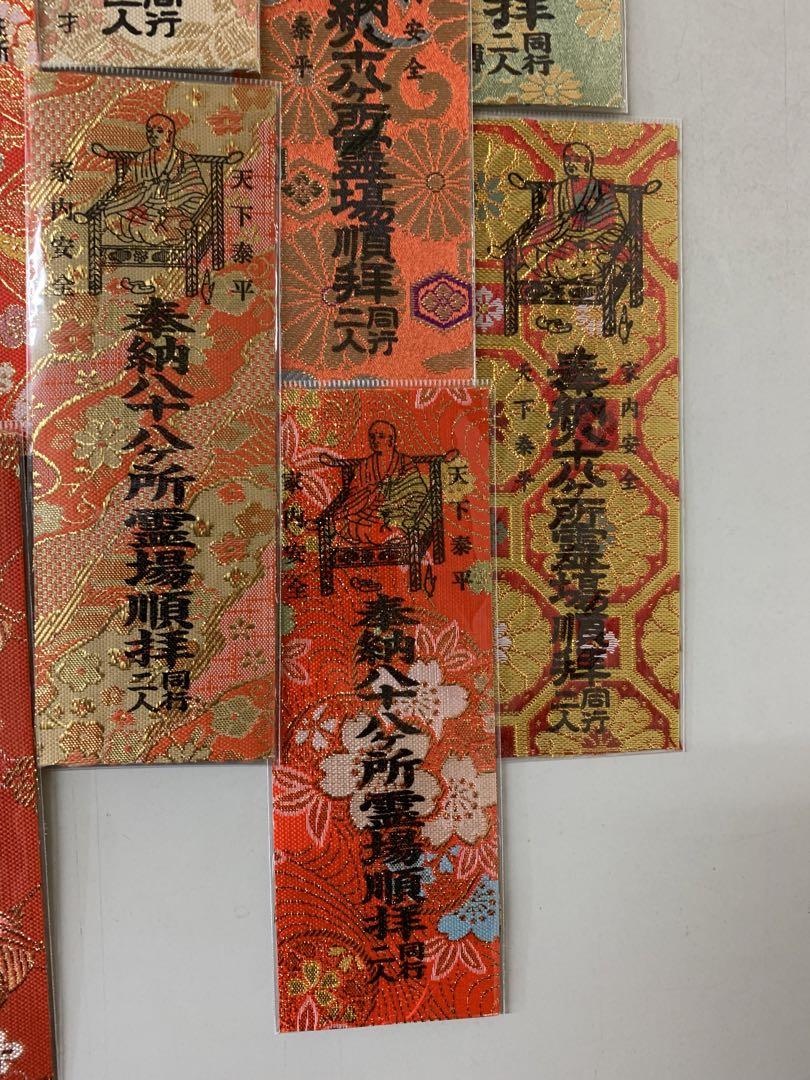 才
同行
二人
納八十八ヶ所霊場順拝
泰平
安全
同行
二人
拝
同行
二人
天下泰平
家内安全
奉納八十八ヶ所霊場順拝
同行
二人
天下泰平
家内安全
奉納八十八ヶ所霊場順拝
同行
二人
家内安全
天下泰平
奉納八十八ヶ所霊場順拝
同行
二人